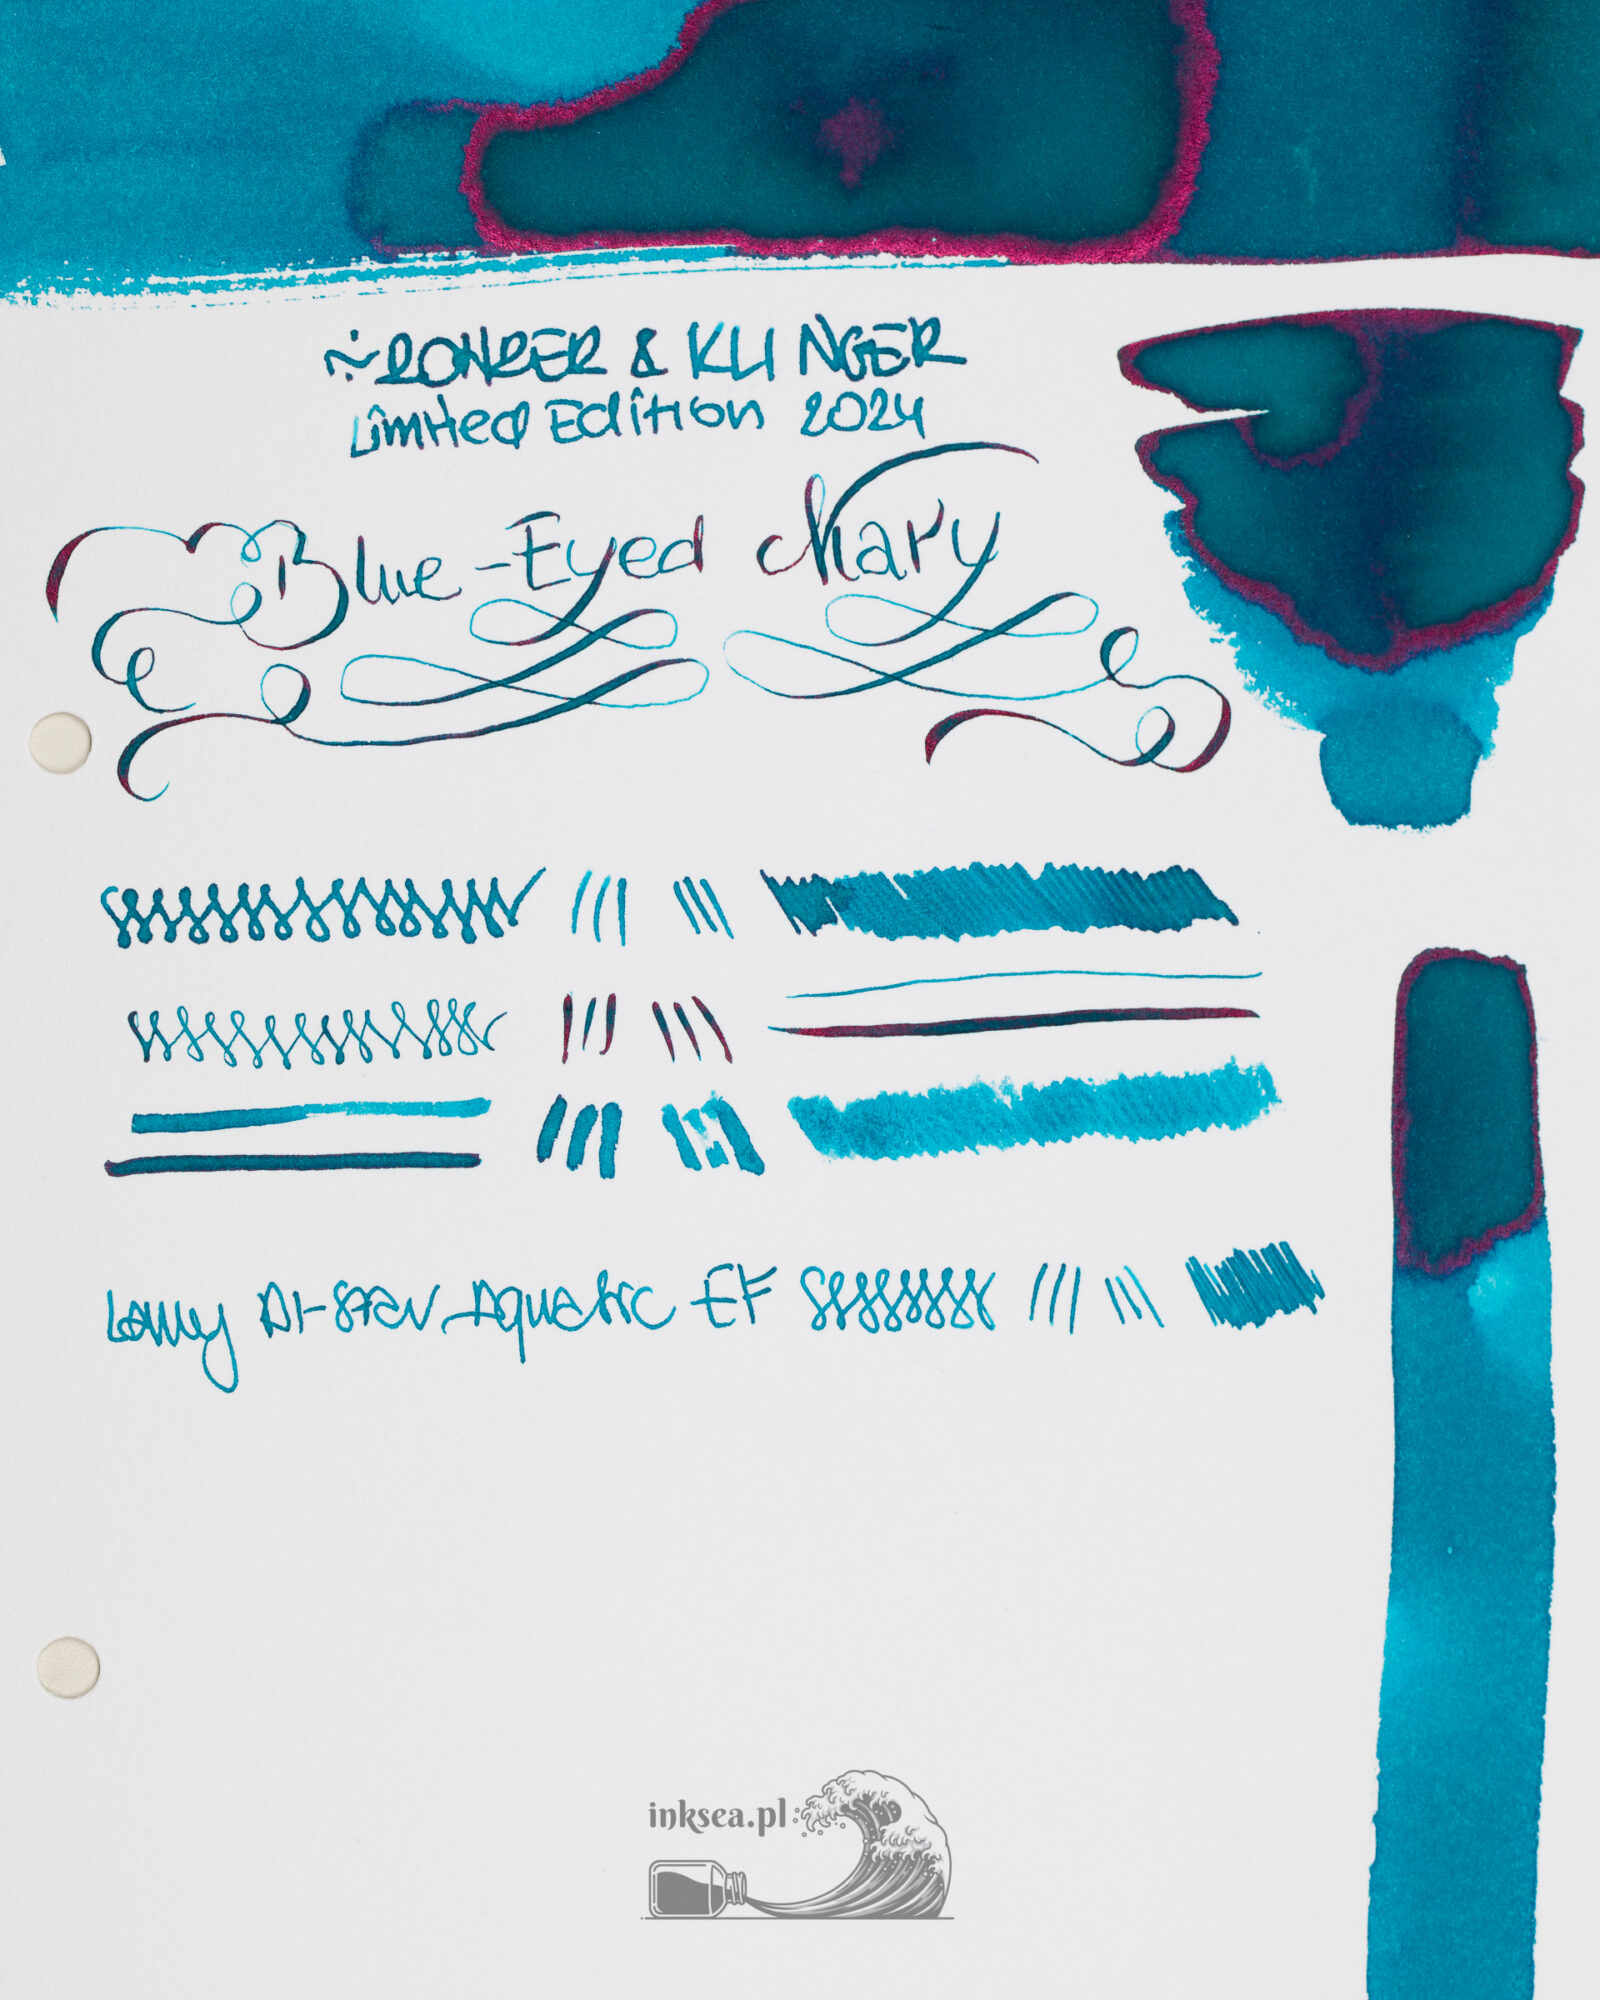 ROHRER & KLINGER
Limited Edition 2024
Blue-Eyed Mary
Lamy Al-star Aquatic EF
inksea.pl